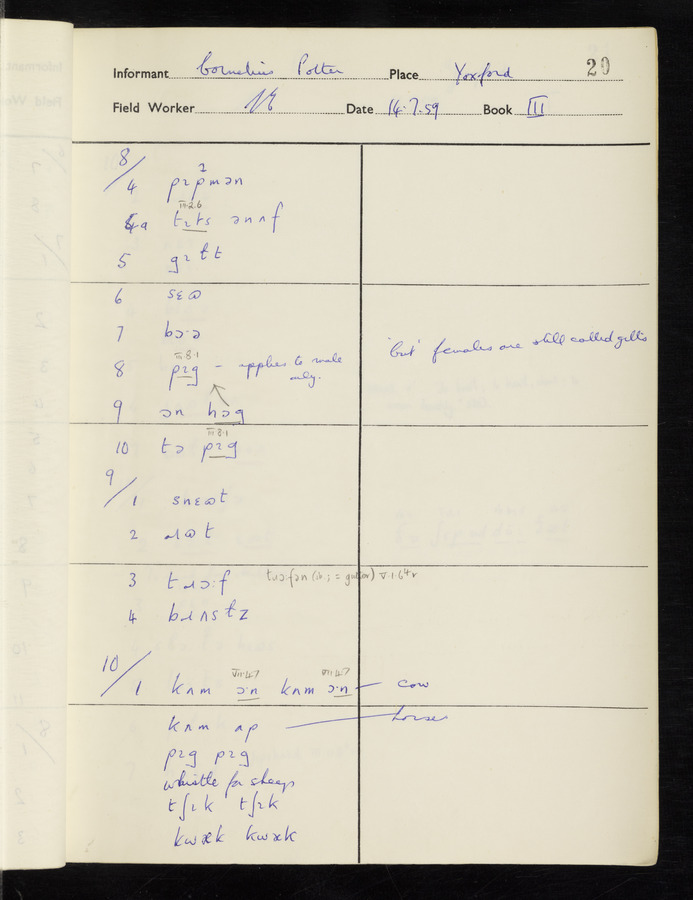 Informant Cornelius Potter Place Yoxford 29
Field Worker Date 14.7.59 Book III
8/
4 pɪpmən
III.2.6
5a tɪts ənʌf
5 gɪlt
6 sɛɷ
7 bɔːə
III.8.1
8 pɪg – applies to male only. but females are still called gilts
9 ən hɔg
III.8.1
10 tə pɪg
9/
1 snɛɷt
2 ɹɷt
3 tɹɔːf
= gutter) V.1.6
4 bɹʌstz
10/
VII.4.7 VII.4.7
1 kʌm ɔːn kʌm ɔːn – cow
kʌm ʌp – horses
pɪg pɪg
whistle for sheep
tʃɪk tʃɪk
kwæk kwæk